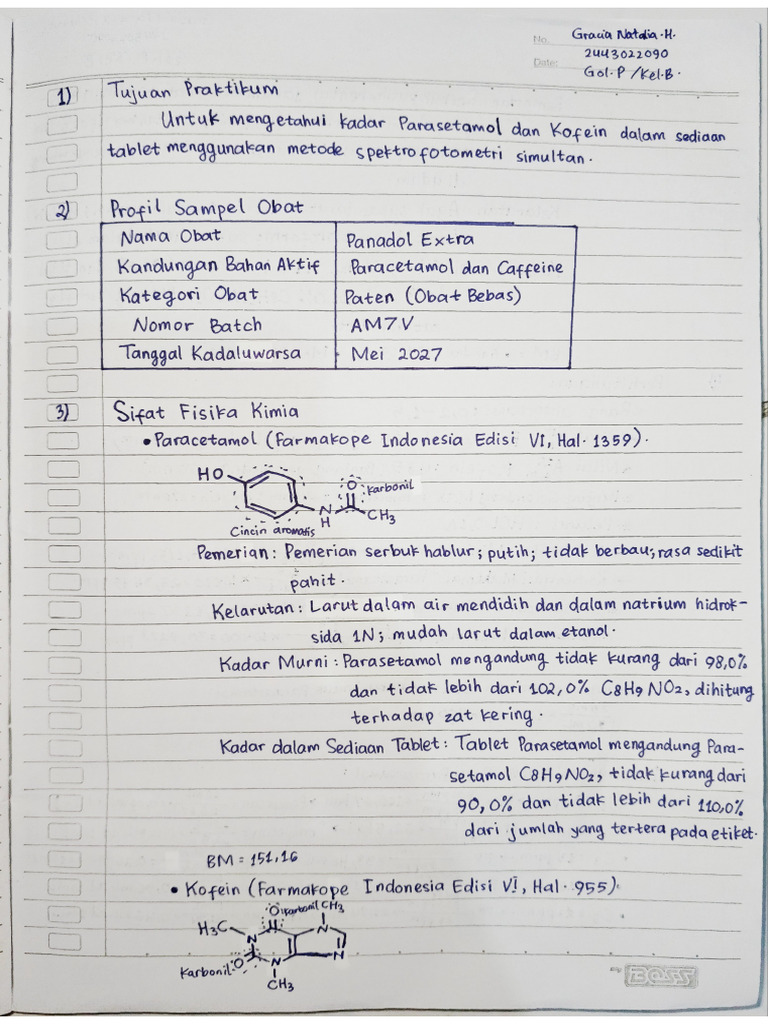 No. Gracia Natalia.H.
2443022090
Date: Gol.P /Kel.B.
1) Tujuan Praktikum
Untuk mengetahui kadar Parasetamol dan Kofein dalam sediaan
tablet menggunakan metode spektrofotometri simultan.
2) Profil Sampel Obat
Nama Obat Panadol Extra
Kandungan Bahan Aktif Paracetamol dan Caffeine
Kategori Obat Paten (Obat Bebas)
Nomor Batch AM7V
Tanggal Kadaluwarsa Mei 2027
3) Sifat Fisika Kimia
• Paracetamol (Farmakope Indonesia Edisi VI, Hal. 1359).
HO
O Karbonil
N
H
CH3
Cincin aromatis
Pemerian : Pemerian serbuk hablur; putih; tidak berbau; rasa sedikit
pahit.
Kelarutan : Larut dalam air mendidih dan dalam natrium hidrok-
sida 1N; mudah larut dalam etanol.
Kadar Murni : Parasetamol mengandung tidak kurang dari 98,0%
dan tidak lebih dari 102,0% C8H9NO2, dihitung
terhadap zat kering.
Kadar dalam Sediaan Tablet : Tablet Parasetamol mengandung Para-
setamol C8H9NO2, tidak kurang dari
90,0% dan tidak lebih dari 110,0%
dari jumlah yang tertera pada etiket.
BM = 151,16
• Kofein (Farmakope Indonesia Edisi VI, Hal. 955).
O Karbonil CH3
H3C
N
N
Karbonil O
N
N
CH3
BOSS